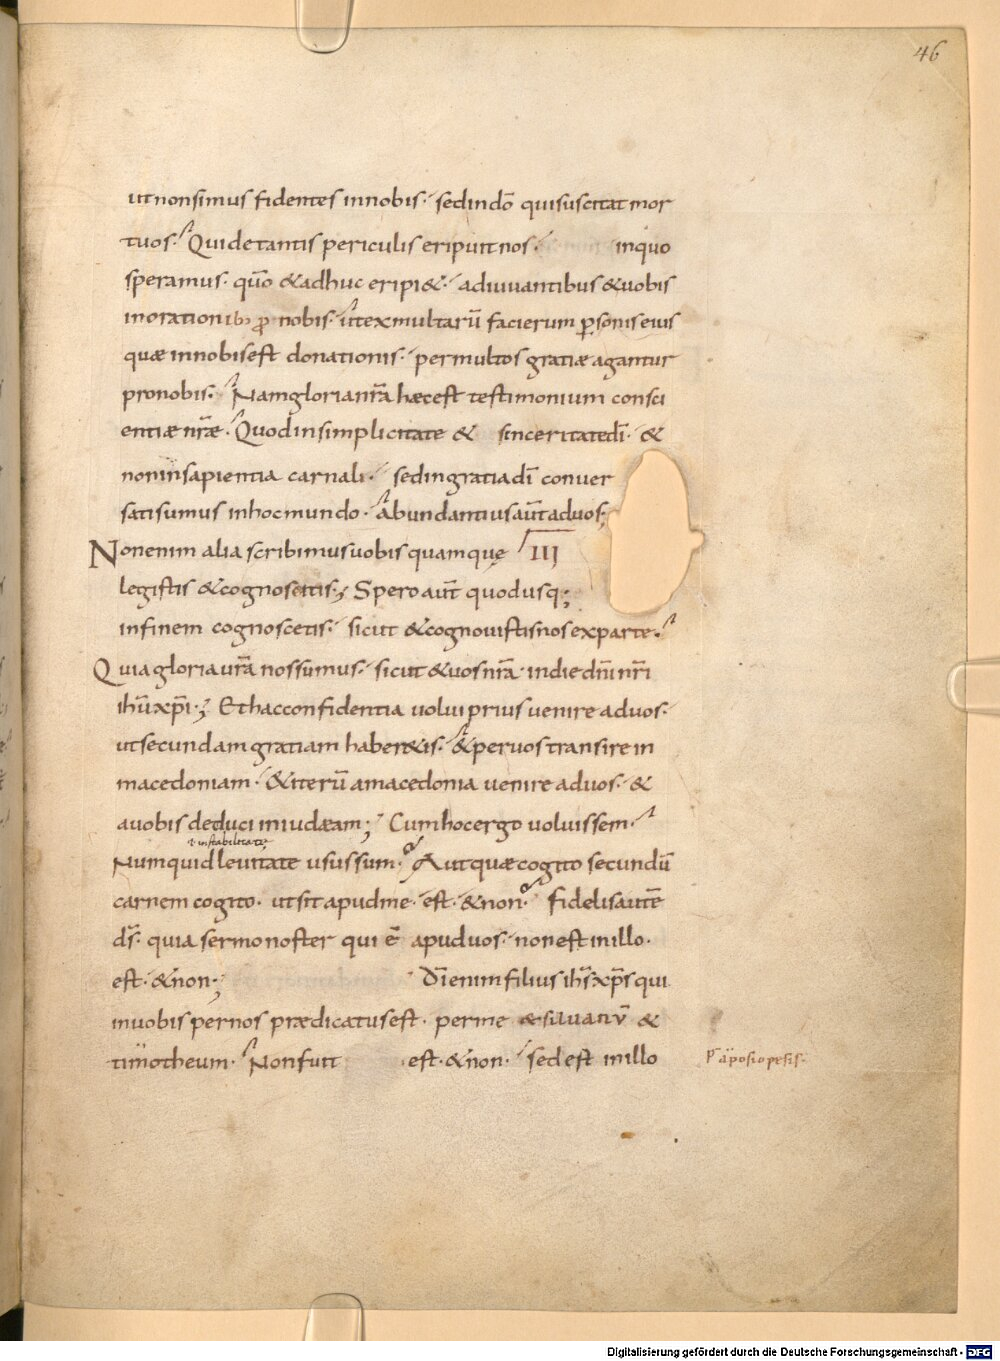 46
ut non simus fidentes in nobis· sed in dō qui suscitat mor
tuos· Qui de tantis periculis eripuit nos· in quo
speramus· qm̄o &adhuc eripi&· adiuvantibus &vobis
in orationib; ꝓ nobis· ut ex multarū facierum ꝑsonis eius
quæ in nobis est donationis· per multos gratiæ agantur
pro nobis· Nam gloria nr̄a hæc est testimonium consci
entiæ nr̄æ· Quod in simplicitate & sinceritate dī· &
non in sapientia carnali· sed in gratia dī conver
sati sumus in hoc mundo· Abundantius aūt ad vos;
Non enim alia scribimus vobis quam quę III
legistis &cognoscitis; Spero aūt quod usq;
in finem cognoscetis· sicut &cognovistis nos ex parte·
Quia gloria vr̄a nos sumus· sicut &vos nr̄a· in die dn̄i nr̄i
ihū xp̄i; Et hac confidentia volui prius venire ad vos·
ut secundam gratiam haber&is· &per vos transire in
macedoniam· &iterū a macedonia venire ad vos· &
a vobis deduci in iudæam; Cum hoc ergo voluissem·
ł instabilitate
Numquid levitate usus sum· Aut quæ cogito secundū
carnem cogito· ut sit apud me· est· &non· fidelis autē
ds̄· quia sermo noster qui ē apud vos· non est in illo·
est· &non; Dī enim filius ihs̄ xp̄s qui
in vobis per nos prædicatus est· per me &siluanū &
timotheum· Non fuit est· &non· sed est in illo
aposiopesis·
Digitalisierung gefördert durch die Deutsche Forschungsgemeinschaft - DFG